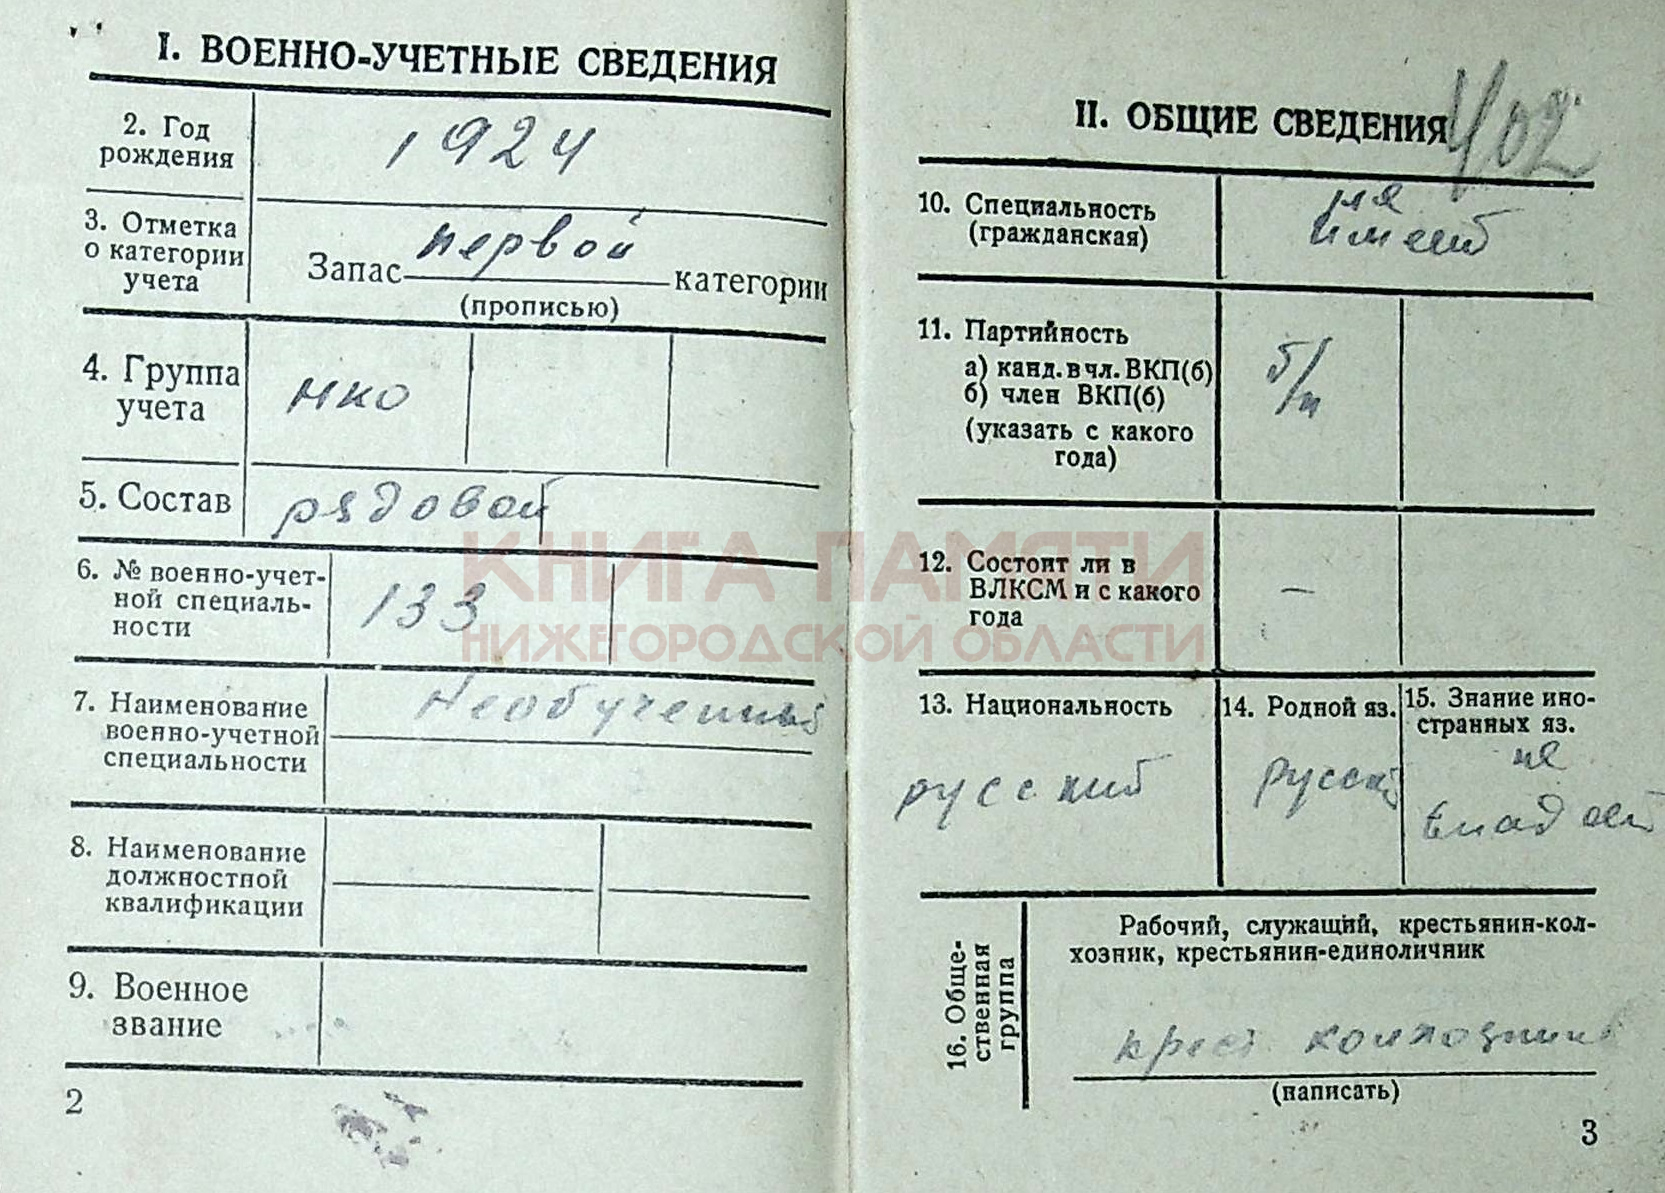 I. ВОЕННО-УЧЕТНЫЕ СВЕДЕНИЯ
2. Год
рождения
1924
3. Отметка
о категории
учета
Запас первой категории
(прописью)
4. Группа
учета
нко
5. Состав
рядовой
6. № военно-учет-
ной специаль-
ности
133
7. Наименование
военно-учетной
специальности
Необученный
8. Наименование
должностной
квалификации
9. Военное
звание
2
402
II. ОБЩИЕ СВЕДЕНИЯ
10. Специальность
(гражданская)
не
имеет
11. Партийность
а) канд. в чл. ВКП(б)
б) член ВКП(б)
(указать с какого
года)
б/п
12. Состоит ли в
ВЛКСМ и с какого
года
—
13. Национальность
русский
14. Родной яз.
русский
15. Знание ино-
странных яз.
не
владеет
16. Обще-
ственная
группа
Рабочий, служащий, крестьянин-кол-
хозник, крестьянин-единоличник
крест. колхозник
(написать)
3
КНИГА ПАМЯТИ
НИЖЕГОРОДСКОЙ ОБЛАСТИ